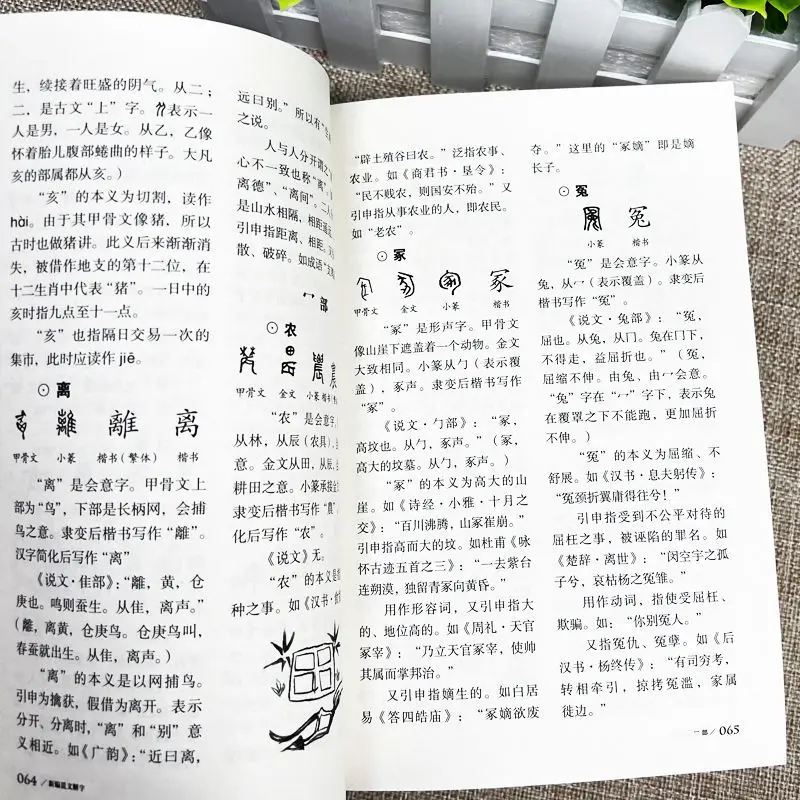 生，续接着旺盛的阴气。从二；
二，是古文“上”字。𠈌表示一
人是男，一人是女。从乙，乙像
怀着胎儿腹部蜷曲的样子。大凡
亥的部属都从亥。）
“亥”的本义为切割，读作
hài。由于其甲骨文像猪，所以
古时也做猪讲。此义后来渐渐消
失，被借作地支的第十二位，在
十二生肖中代表“猪”。一日中的
亥时指九点至十一点。
“亥”也指隔日交易一次的
集市，此时应读作 jiē。
⊙离
離 离
甲骨文 小篆 楷书（繁体） 楷书
“离”是会意字。甲骨文上
部为“鸟”，下部是长柄网，会捕
鸟之意。隶变后楷书写作“離”。
汉字简化后写作“离”
《说文·隹部》：“離，黄，仓
庚也。鸣则蚕生。从隹，离声。”
（離，离黄，仓庚鸟。仓庚鸟叫，
春蚕就出生。从隹，离声。）
“离”的本义是以网捕鸟。
引申为擒获，假借为离开。表示
分开、分离时，“离”和“别”意
义相近。如《广韵》：“近曰离，
064／新编说文解字
远曰别。”所以有“
之说。
人与人分开谓之
心不一致也称“离”
离德”、“离间”。二人
是山水相隔，相距遥
引申指距离、相距。
散、破碎。如成语“支
冖部
⊙农
農
甲骨文 金文 小篆 楷书
“农”是会意字。
从林，从辰（农具），
意。金文从田，从辰，
耕田之意。小篆承接金
隶变后楷书写作“農”
化后写作“农”。
《说文》无。
“农”的本义是指
种之事。如《汉书·食
“辟土殖谷曰农。”泛指农事、
农业。如《商君书·垦令》：
“民不贱农，则国安不殆。”又
引申指从事农业的人，即农民。
如“老农”。
⊙冢
冢
甲骨文 金文 小篆 楷书
“冢”是形声字。甲骨文
像山崖下遮盖着一个动物。金文
大致相同。小篆从勹（表示覆
盖），豖声。隶变后楷书写作
“冢”。
《说文·勹部》：“冢，
高坟也。从勹，豖声。”（冢，
高大的坟墓。从勹，豖声。）
“冢”的本义为高大的山
崖。如《诗经·小雅·十月之
交》：“百川沸腾，山冢崔崩。”
引申指高而大的坟。如杜甫《咏
怀古迹五首之三》：“一去紫台
连朔漠，独留青冢向黄昏。”
用作形容词，又引申指大
的、地位高的。如《周礼·天官
冢宰》：“乃立天官冢宰，使帅
其属而掌邦治。”
又引申指嫡生的。如白居
易《答四皓庙》：“冢嫡欲废
夺。”这里的“冢嫡”即是嫡
长子。
⊙冤
冤
小篆 楷书
“冤”是会意字。小篆从
兔，从冖（表示覆盖）。隶变后
楷书写作“冤”。
《说文·兔部》：“冤，
屈也。从兔，从冂。兔在冂下，
不得走，益屈折也。”（冤，
屈缩不伸。由兔、由冖会意。
“兔”字在“冖”字下，表示兔
在覆罩之下不能跑，更加屈折
不伸。）
“冤”的本义为屈缩、不
舒展。如《汉书·息夫躬传》：
“冤颈折翼庸得往兮！”
引申指受到不公平对待的
屈枉之事，被诬陷的罪名。如
《楚辞·离世》：“闵空宇之孤
子兮，哀枯杨之冤雏。”
用作动词，指使受屈枉、
欺骗。如：“你别冤人。”
又指冤仇、冤孽。如《后
汉书·杨终传》：“有司穷考，
转相牵引，掠拷冤滥，家属
徙边。”
冖部／065